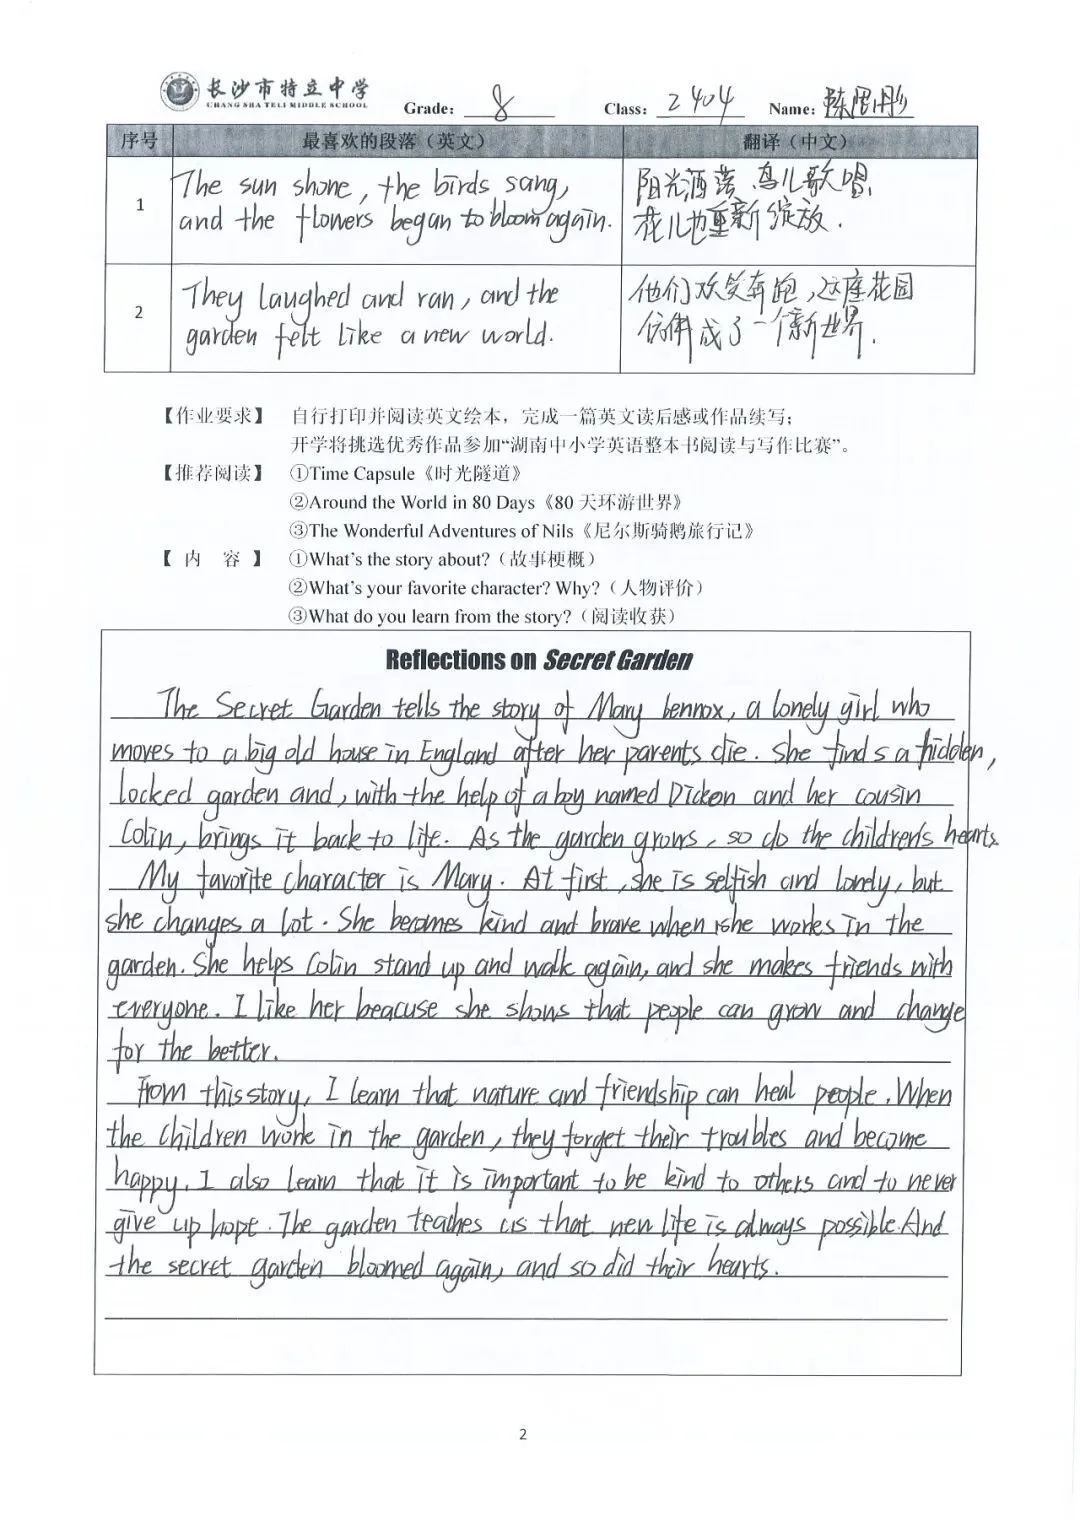 长沙市特立中学
CHANG SHA TELI MIDDLE SCHOOL
Grade: 8 Class: 2404 Name: 陈
序号 最喜欢的段落（英文） 翻译（中文）
1
The sun shone, the birds sang,
and the flowers began to bloom again.
阳光洒落、鸟儿歌唱,
花儿也重新绽放.
2
They laughed and ran, and the
garden felt like a new world.
他们欢笑奔跑,这座花园
仿佛成了一个新世界.
【作业要求】 自行打印并阅读英文绘本，完成一篇英文读后感或作品续写；
开学将挑选优秀作品参加“湖南中小学英语整本书阅读与写作比赛”。
【推荐阅读】 ①Time Capsule《时光隧道》
②Around the World in 80 Days《80 天环游世界》
③The Wonderful Adventures of Nils《尼尔斯骑鹅旅行记》
【 内 容 】 ①What's the story about?（故事梗概）
②What's your favorite character? Why?（人物评价）
③What do you learn from the story?（阅读收获）
Reflections on Secret Garden
The Secret Garden tells the story of Mary Lennox, a lonely girl who
moves to a big old house in England after her parents die. She finds a hidden,
locked garden and, with the help of a boy named Dickon and her cousin
Colin, brings it back to life. As the garden grows, so do the children's hearts.
My favorite character is Mary. At first, she is selfish and lonely, but
she changes a lot. She becomes kind and brave when she works in the
garden. She helps Colin stand up and walk again, and she makes friends with
everyone. I like her beacuse she shows that people can grow and change
for the better.
From this story, I learn that nature and friendship can heal people. When
the children work in the garden, they forget their troubles and become
happy. I also learn that it is important to be kind to others and to never
give up hope. The garden teaches us that new life is always possible. And
the secret garden bloomed again, and so did their hearts.
2